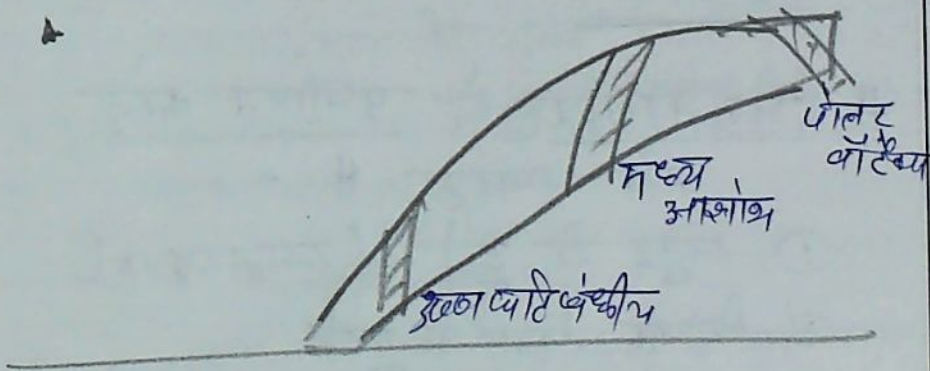 पोलर
वॉर्टेक्स
मध्य
अक्षांश
उष्ण कटिबंधीय